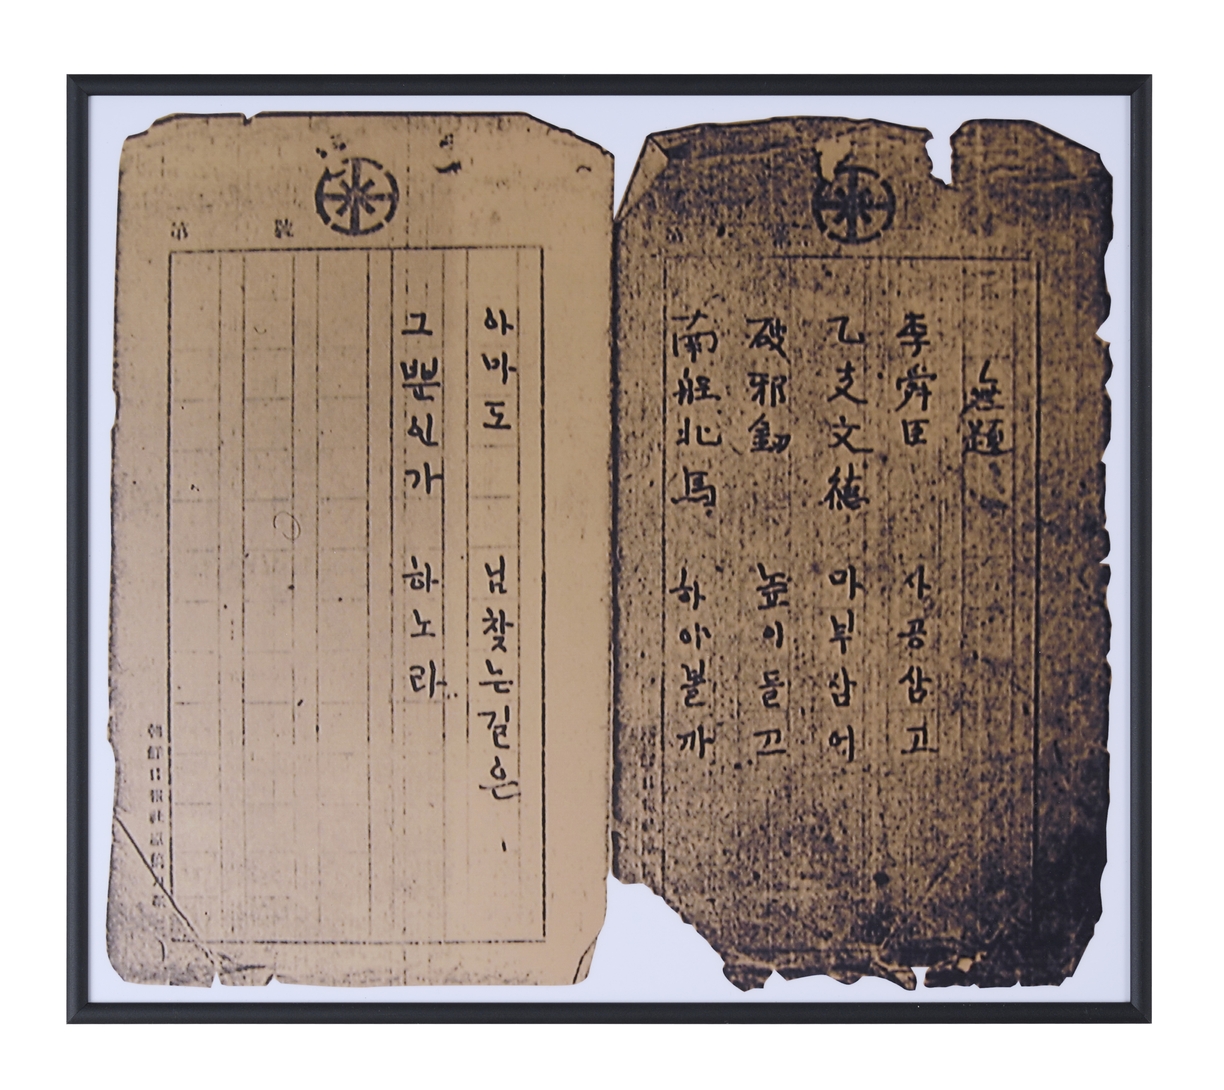 無題
李舜臣 사공삼고
乙支文德 마부삼어
破邪劍 높이들고
南船北馬 하야볼까
第 號
아마도 님찾는길은
그뿐인가 하노라
朝鮮日報社